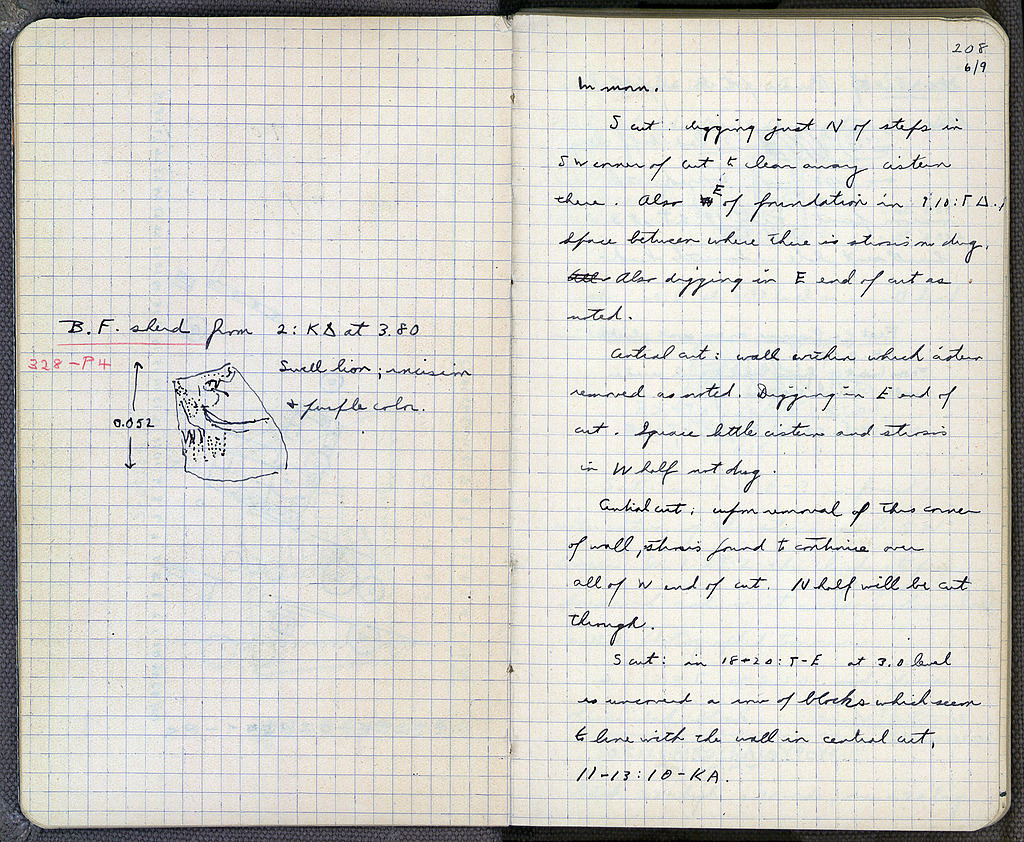 B.F. sherd from 2: KΔ at 3.80
328-P4
Small lion; incision
+ purple color.
0.052
208
6/9
In morn.
S cut: digging just N of steps in
SW corner of cut to clear away cistern
there. Also E of foundation in 9,10: ΓΔ.
Space between where there is strosis no dug.
Also digging in E end of cut as
noted.
Central cut: wall within which cistern
removed as noted. Digging in E end of
cut. Space little cistern and strosis
in W half not dug.
Central cut; upon removal of this corner
of wall, strosis found to continue over
all of W end of cut. N half will be cut
through.
S cut: in 18-20: at 3.0 level
is uncovered a row of blocks which seem
to line with the wall in central cut,
11-13: 10-KA.